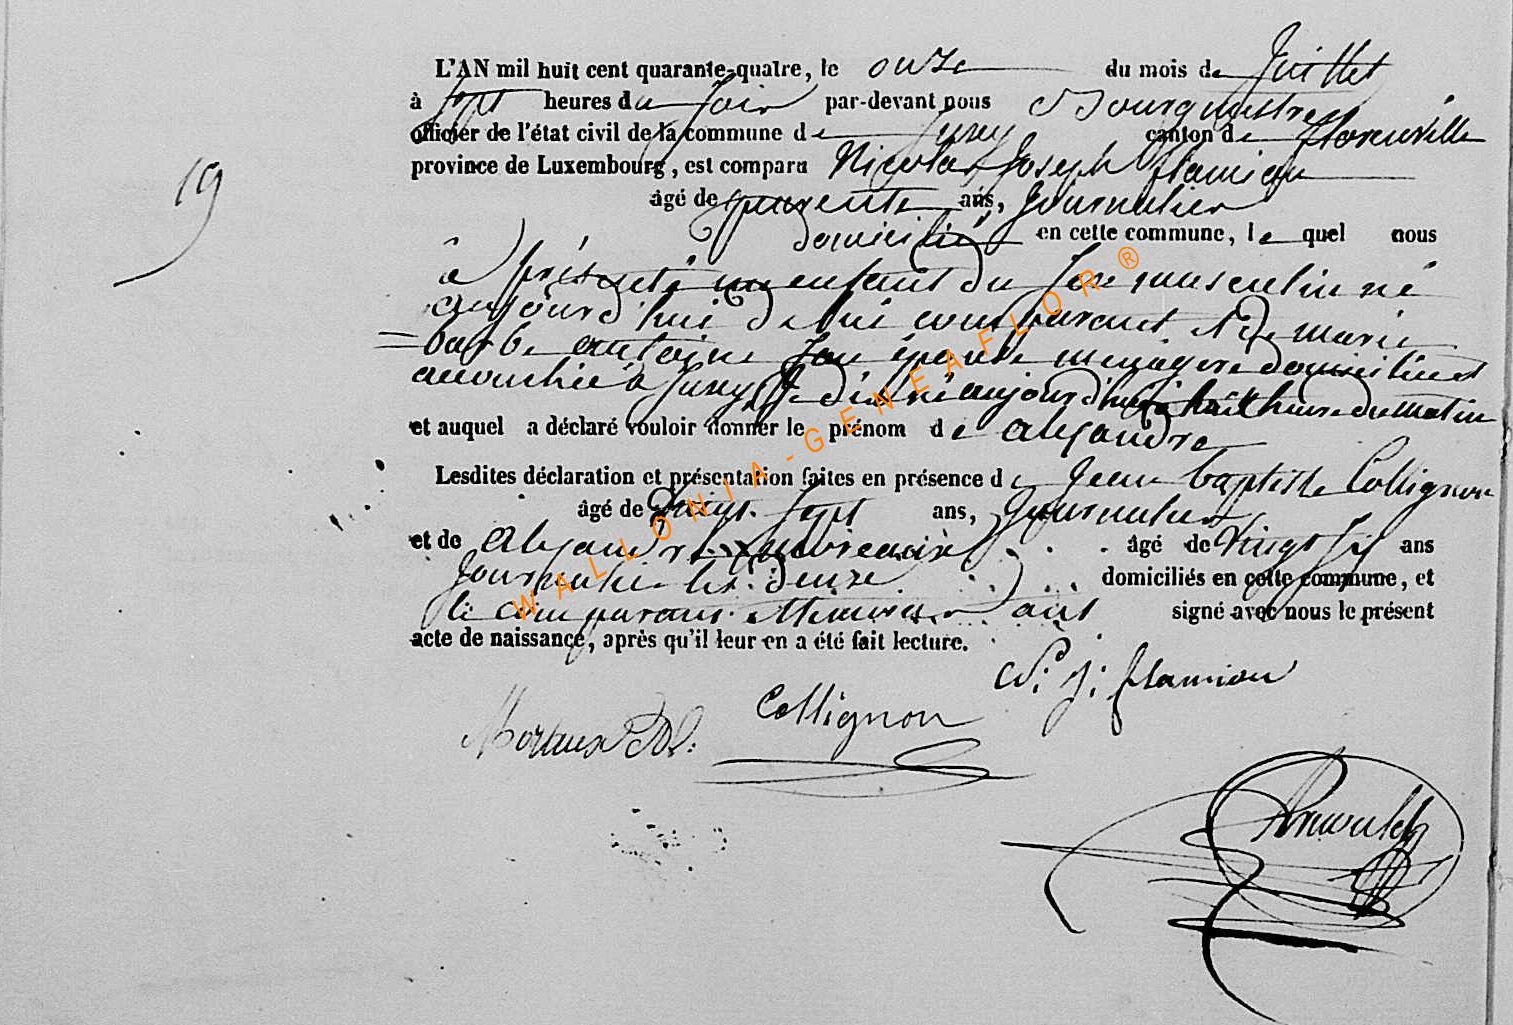 L'AN mil huit cent quarante-quatre, le onze du mois de Juillet
à Sept heures du Soir par-devant nous Bourgmestre
officier de l'état civil de la commune de Izel canton de florenville
province de Luxembourg, est comparu Nicolas Joseph flamion
19
âgé de quarente ans, Journalier
domicilié en cette commune, le quel nous
a présenté un enfant du sexe masculin né
aujourd'hui de lui comparant et de marie
barbe antoine son épouse menagère domiciliée et
accouchée à né aujourd'hui à huit heures du matin
et auquel a déclaré vouloir donner le prénom de alexandre
Lesdites déclaration et présentation faites en présence de jean baptiste Collignon
âgé de Sept ans, Journalier
et de alexandre âgé de Vingt Six ans
Journalier les deux domiciliés en cette commune, et
le comparant et temoins ont signé avec nous le présent
acte de naissance, après qu'il leur en a été fait lecture.
N. J. flamion
Collignon
WALLONIA-GENEAFLOR ®